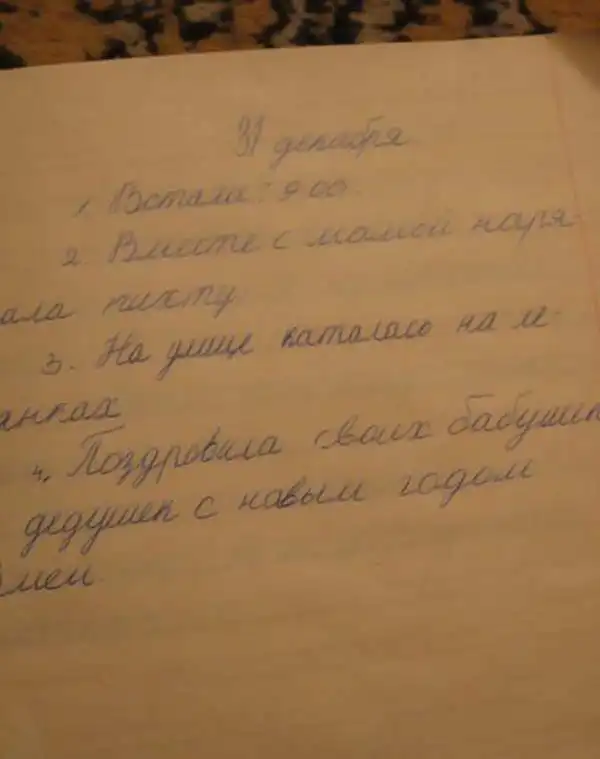 31 декабря
1. Встала: 9 00.
2. Вместе с мамой наря-
ала пихту
3. На улице каталась на ле-
анках
4. Поздровила своих бабушек
дедушек с новым годом
змеи